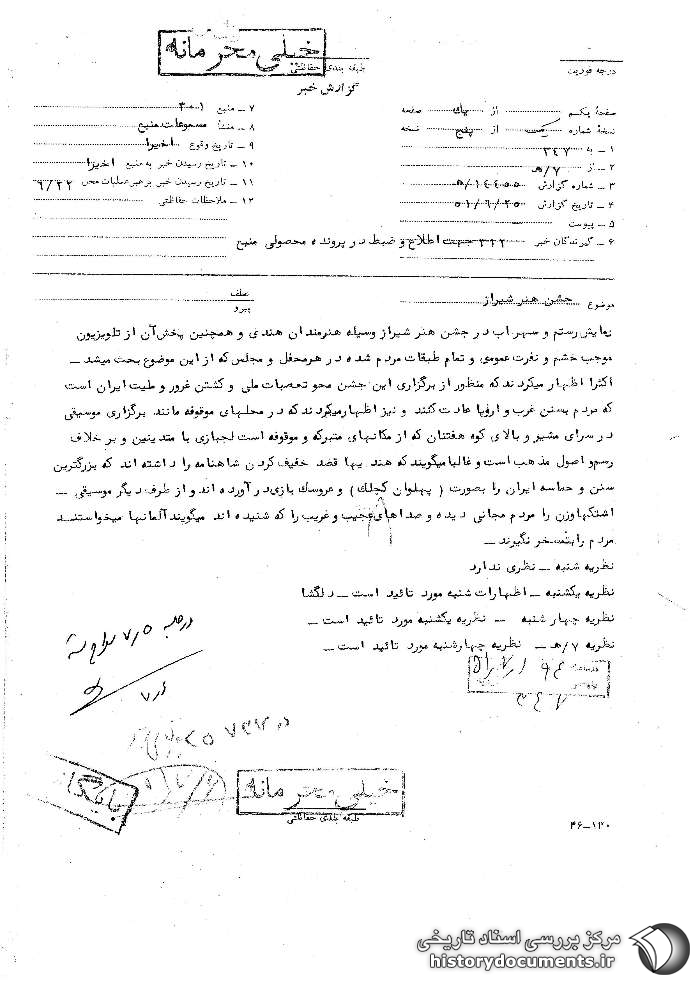 خیلی محرمانه
درجه فوریت
طبقه بندی حفاظتی
گزارش خبر
صفحه یکم از یک صفحه
نسخه شماره یک از پنج نسخه
۱ – به ۳۴۷
۲ – از ۷/هـ
۳ – شماره گزارش ۱۴۴۵۵/هـ
۴ – تاریخ گزارش ۵۱/۶/۲۵
۵ – پیوست
۶ – گیرندگان خبر ۳۲۲ جهت اطلاع و ضبط در پرونده محصولی منبع
۷ – منبع
۸ – منشأ مسموعات منبع
۹ – تاریخ وقوع اخیرا
۱۰ – تاریخ رسیدن خبر به منبع اخیرا
۱۱ – تاریخ رسیدن خبر برهبر عملیات محل ۶/۲۲
۱۲ – ملاحظات حفاظتی
موضوع جشن هنر شیراز
عطف
پیرو
نمایش رستم و سهراب در جشن هنر شیراز وسیله هنرمندان هندی و همچنین پخش آن از تلویزیون
موجب خشم و نفرت عمومی و تمام طبقات مردم شده در هرمحفل و مجلس که از این موضوع بحث میشد –
اکثرا اظهار میکردند که منظور از برگزاری این جشن محو تعصبات ملی و کشتن غرور و ملیت ایران است
که مردم بسنن غرب و اروپا عادت کنند و نیز اظهارمیکردند که در محلهای موقوفه مانند برگزاری موسیقی
در سرای مشیر و بالای کوه هفتتان که از مکانهای متبرکه و موقوفه است لجبازی با متدینین و بر خلاف
رسم و اصول مذهب است و غالبا میگویند که هندیها قصد خفیف کردن شاهنامه را داشته اند که بزرگترین
سنن و حماسه ایران را بصورت ( پهلوان کچلک ) و عروسک بازی در آورده اند و از طرف دیگر موسیقی –
اشتکهاوزن را مردم مجانی دیده و صداهای عجیب و غریب را که شنیده اند میگویند آلمانها میخواستند
مردم را بتمسخر بگیرند –
نظریه شنبه – نظری ندارد
نظریه یکشنبه – اظهارات شنبه مورد تائید است – دلگشا
نظریه چهارشنبه – نظریه یکشنبه مورد تائید است –
نظریه ۷/هـ – نظریه چهارشنبه مورد تائید است –
خیلی محرمانه
طبقه بندی حفاظتی
بایگانی
۴۶–۱۳۰
مرکز بررسی اسناد تاریخی
historydocuments.ir